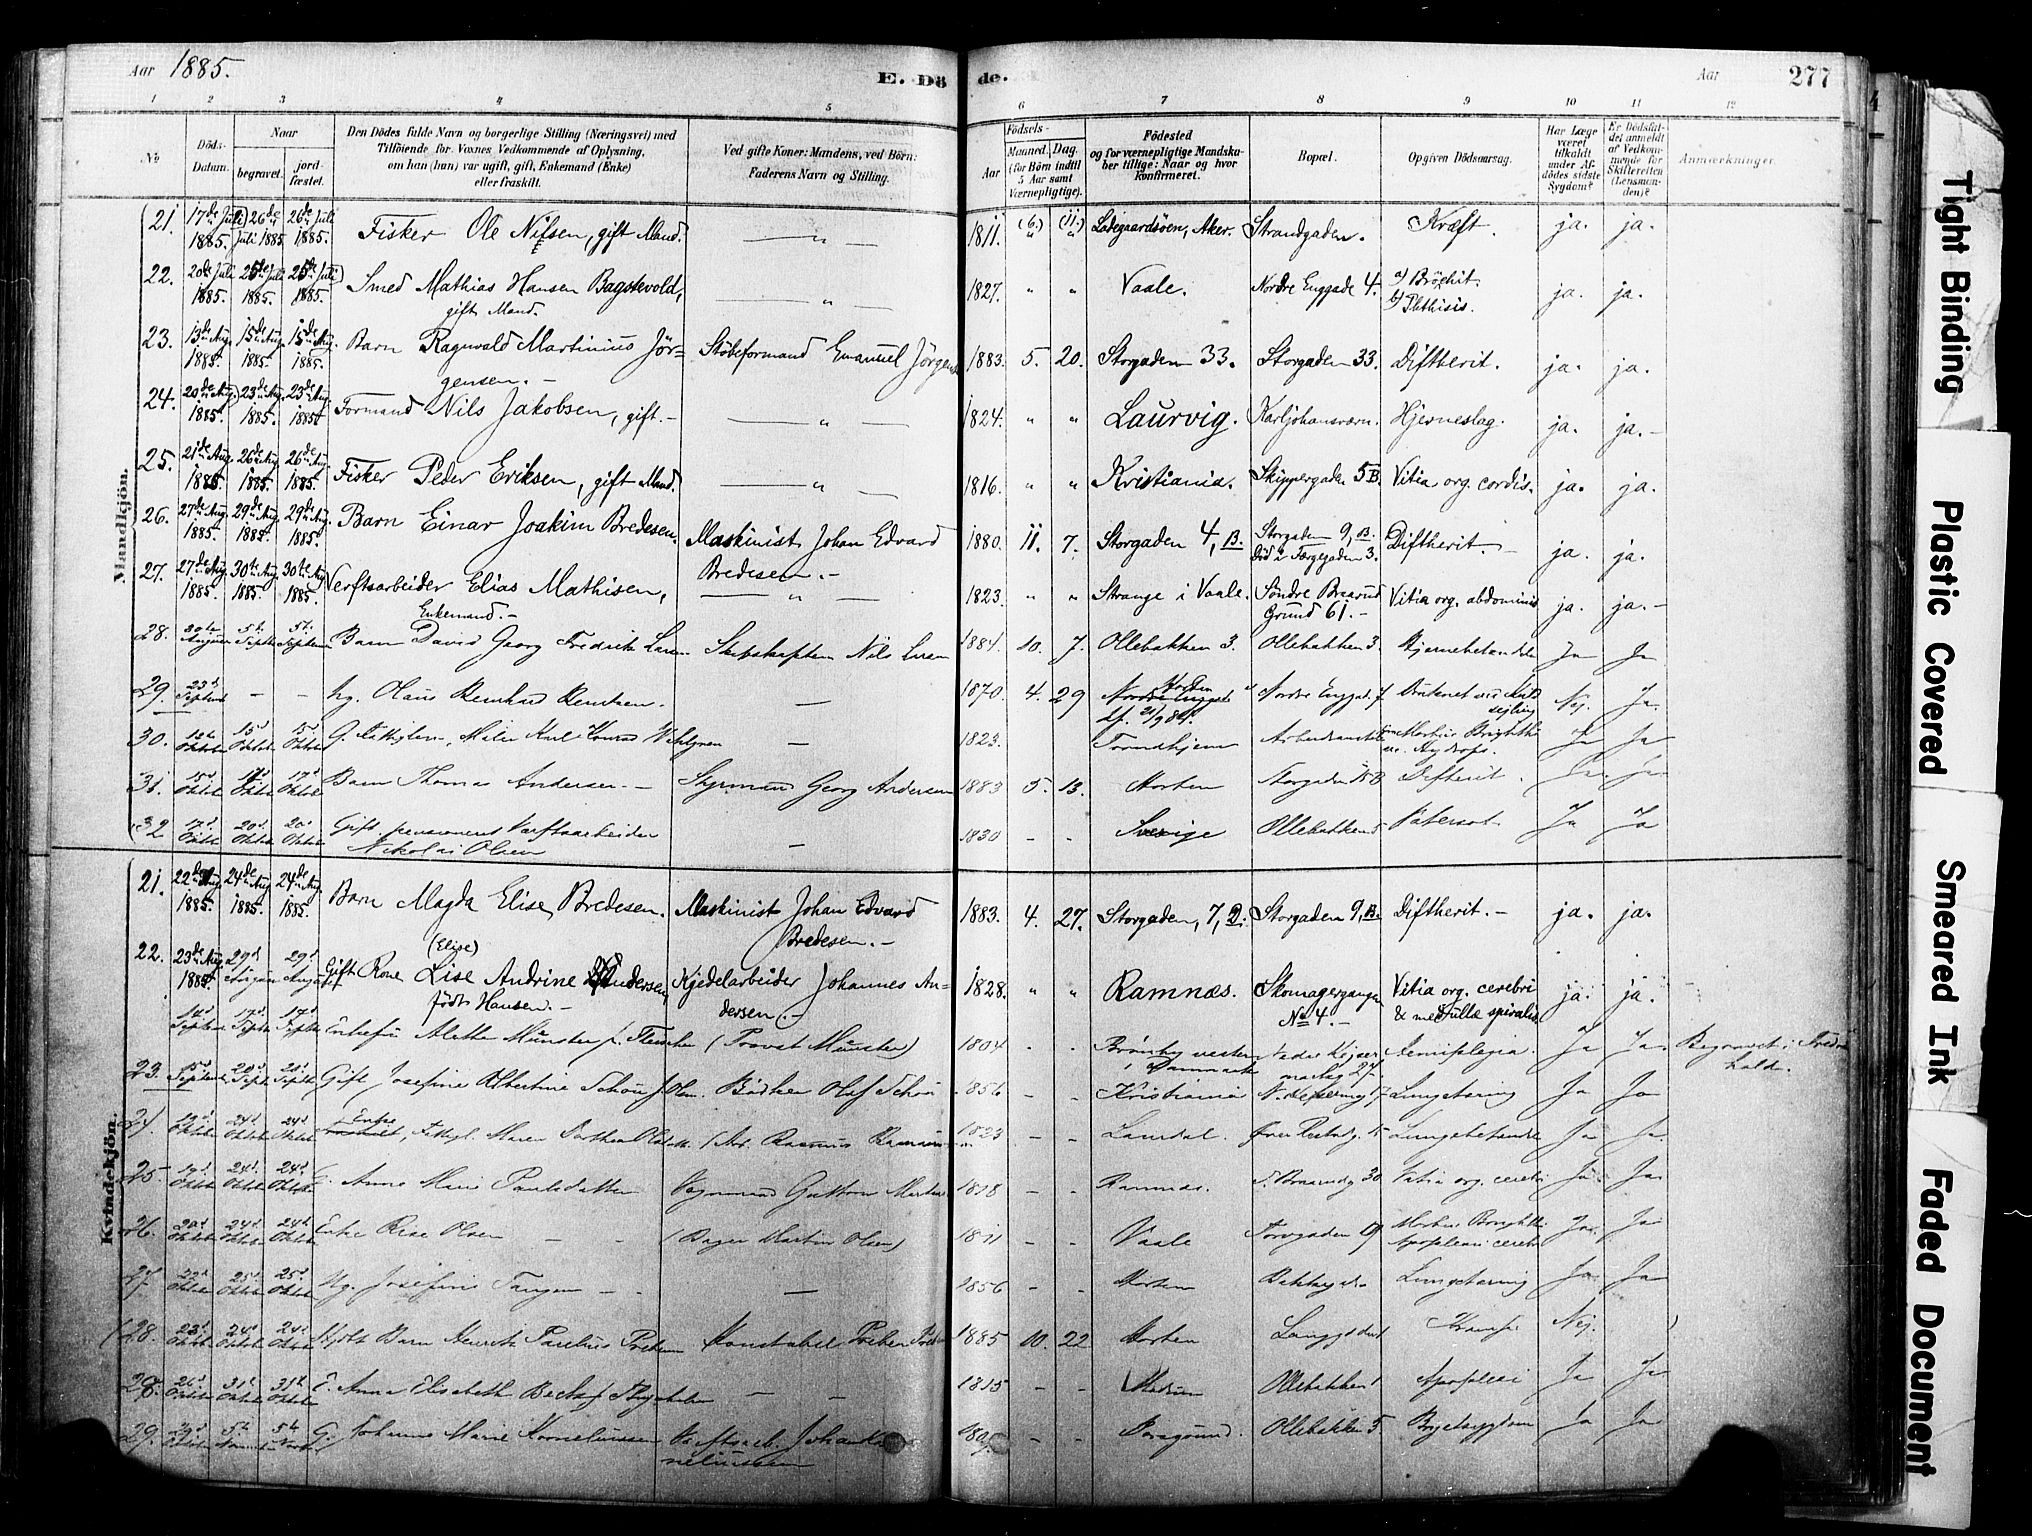 Aar 1885.
E. Dö
de.
Aar
277
1 2 3 4 5 6 7 8 9 10 11 12
No
Döds-Datum.
Naar
begravet.
jordfæstet.
Den Dödes fulde Navn og borgerlige Stilling (Næringsvei) med
Tilföiende for Voxnes Vedkommende af Oplysning,
om han (hun) var ugift, gift, Enkemand (Enke)
eller fraskilt.
Ved gifte Koner: Mandens, ved Börn:
Faderens Navn og Stilling.
Födsels-
Aar
Maaned. Dag.
(for Börn indtil
5 Aar samt
Værnepligtige).
Födested
og for værnepligtige Mandska-
ber tillige: Naar og hvor
Konfirmeret.
Bopæl.
Opgiven Dödsaarsag.
Har Læge
været
tilkaldt
under Af-
dödes sidste
Sygdom?
Er Dödsfal-
det anmeldt
af Vedkom-
mende for
Skifteretten
(Lensman-
den)?
Anmærkninger.
Mandkjön.
21. 17de Juli 1885. 26de Juli 1885. 26de Juli 1885. Fisker Ole Nilsen, gift Mand. — " — 1811. (6.) " (11.) " Ladegaardsöen, Aker. Strandgaden. Kræft. ja. ja.
22. 20de Juli 1885. 25de Juli 1885. 25de Juli 1885. Smed Mathias Hansen Bagstevold, gift Mand. — " — 1827. " " Vaale. Nordre Enggade 4. a) Bröchit. b) Phthisis. ja. ja.
23. 13de Aug. 1885. 15de Aug. 1885. 15de Aug. 1885. Barn Ragnvald Martinius Jör-
gensen. — Stöbeformand Emanuel Jörgens 1883. 5. 20. Storgaden 33. Storgaden 33. Diftherit. ja. ja.
24. 20de Aug. 1885. 23de Aug. 1885. 23de Aug. 1885. Formand Nils Jakobsen, gift. — — " — 1824. " " Laurvig. Karljohansværn. Hjerneslag. ja. ja. —
25. 21de Aug. 1885. 26de Aug. 1885. 26de Aug. 1885. Fisker Peder Eriksen, gift Mand. — " — 1816. " " Kristiania. Skippergaden 5B. Vitia org. cordis. ja. ja.
26. 27de Aug. 1885. 29de Aug. 1885. 29de Aug. 1885. Barn Einar Joakim Bredesen. Maskinist Johan Edvard
Bredesen. — 1880. 11. 7. Storgaden 4, B. Storgaden 9, B. Död i Færgegaden 3. Diftherit. — ja. ja.
27. 27de Aug. 1885. 30te Aug. 1885. 30te Aug. 1885. Verftsarbeider Elias Mathisen,
Enkemand. — — " — 1823. " " Strange i Vaale. Söndre Braarud Grund 61. — Vitia org. abdominis ja. ja. —
28. 30te August 5te Septbr 5te Barn David Georg Fredrik Larsen Skibskaptein Nils Larsen 1884. 10. 7. Ollebakken 3. Ollebakken 3 Hjernebetændelse Ja Ja
29. 23d Septemb — — Ug. Olaus — 1870 4. 29 Horten Nordre Enggd. 7 Druknet ved seiling Nej. Ja.
30. 12te Oktbr 15d Oktbr 15d Oktbr G. Karl Konrad — 1823. Trondhjem Morbus Brightii Hydrops. Ja Ja
31. 15d Oktbr 17d Oktbr 17d Oktbr Barn Thomas Andersen. — Styrmand Georg Andersen 1883 5. 13. Horten Storgaden 15B Difterit. Ja. Ja
32 17d. Oktbr 20d. Oktbr 20d. Oktbr Gift pensioneret Værftsarbeider
Nikolai Olsen — 1830 - - Sverige Ollebakken 5 Ja Ja
Kvindekjön.
21. 22de Aug. 1885. 24de Aug. 1885. 24de Aug. 1885. Barn Magda Elise Bredesen. Maskinist Johan Edvard
Bredesen. — 1883. 4. 27. Storgaden, 7, D. Storgaden 9, B. Diftherit. — ja. ja.
22. 23de Aug. 1885. 29d August 29d August Gift Kone (Elise) Lise Andrine Andersen
födt Hansen. — Kjedelarbeider Johannes An-
dersen. — 1828. " " Ramnæs. Skomagergangen No 4. — Vitia org. cerebri & medullæ spinalis ja. ja.
14d Septbr 17d Septbr 17d Septbr Enkefru Alethe Münster f. Fleischer (Provst Münster) 1804 - - Brönby vester Danmark 27. Hemiplegia. Ja Ja. Begravet i Fredrikshald.
23. 15d Septemb 20d Septbr 20d Septb Gift Josefine Albertine Schou f. Olsen. Bödker Olaf Schou 1856 - - Kristiania Lungetæring Ja Ja
24. 19d Oktbr 24d Oktbr 24d Oktbr Enke Fattigl. Maren 1823 — - Laurdal. Lungebetændelse Ja Ja.
25 19d Oktbr 24d. Oktbr 24d. Oktbr E. Anne Marie Paulsdatter 1818 — - Ramnæs. 30 Vitia org. cerebri Ja Ja
26. 20d Oktbr 24d Oktbr 24d Oktbr Enke Olsen — - (Bager Martin Olsen) 1811 — - Vaale Torvgaden 19 Morbus Brightii Apoplexi cerebri Ja. Ja
27 22d Oktbr 25d Oktbr 25d. Oktbr Ug. Josefine Tangen — - — 1856 - - Horten Lungetæring Ja Ja
28. 23d Oktbr 24d Oktbr 24d Oktbr Barn Konstabel Preben 1885 10. 22 Horten Langgaden Krampe Nej.
28. 26d Oktbr 31d Oktbr 31d Oktbr E. Anna Elisabeth — — 1815 — - Ollebakken 1 Apoplexi Ja Ja
29. 29d Oktbr 5te 5te G. Johanne Marie Korneliussen Johan Kor-
neliussen 1809. - - Ollebakken 5 Brystsygdom Ja Ja
Tight Binding
Plastic Covered
Smeared Ink
Faded Document